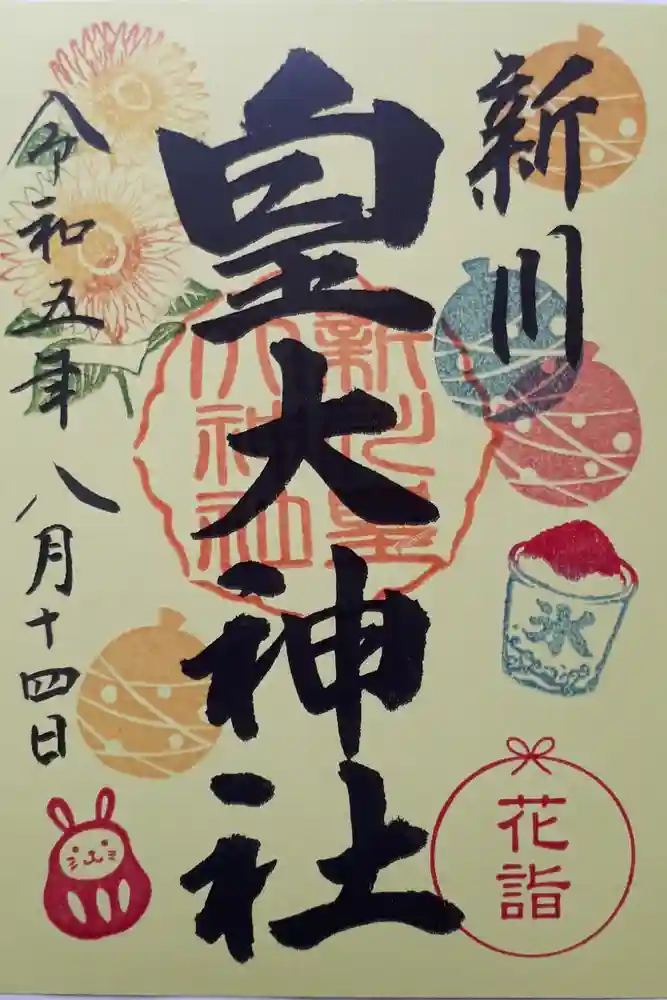 新川
皇大神社
令和五年
八月十四日
新川皇
大神社
氷
花詣